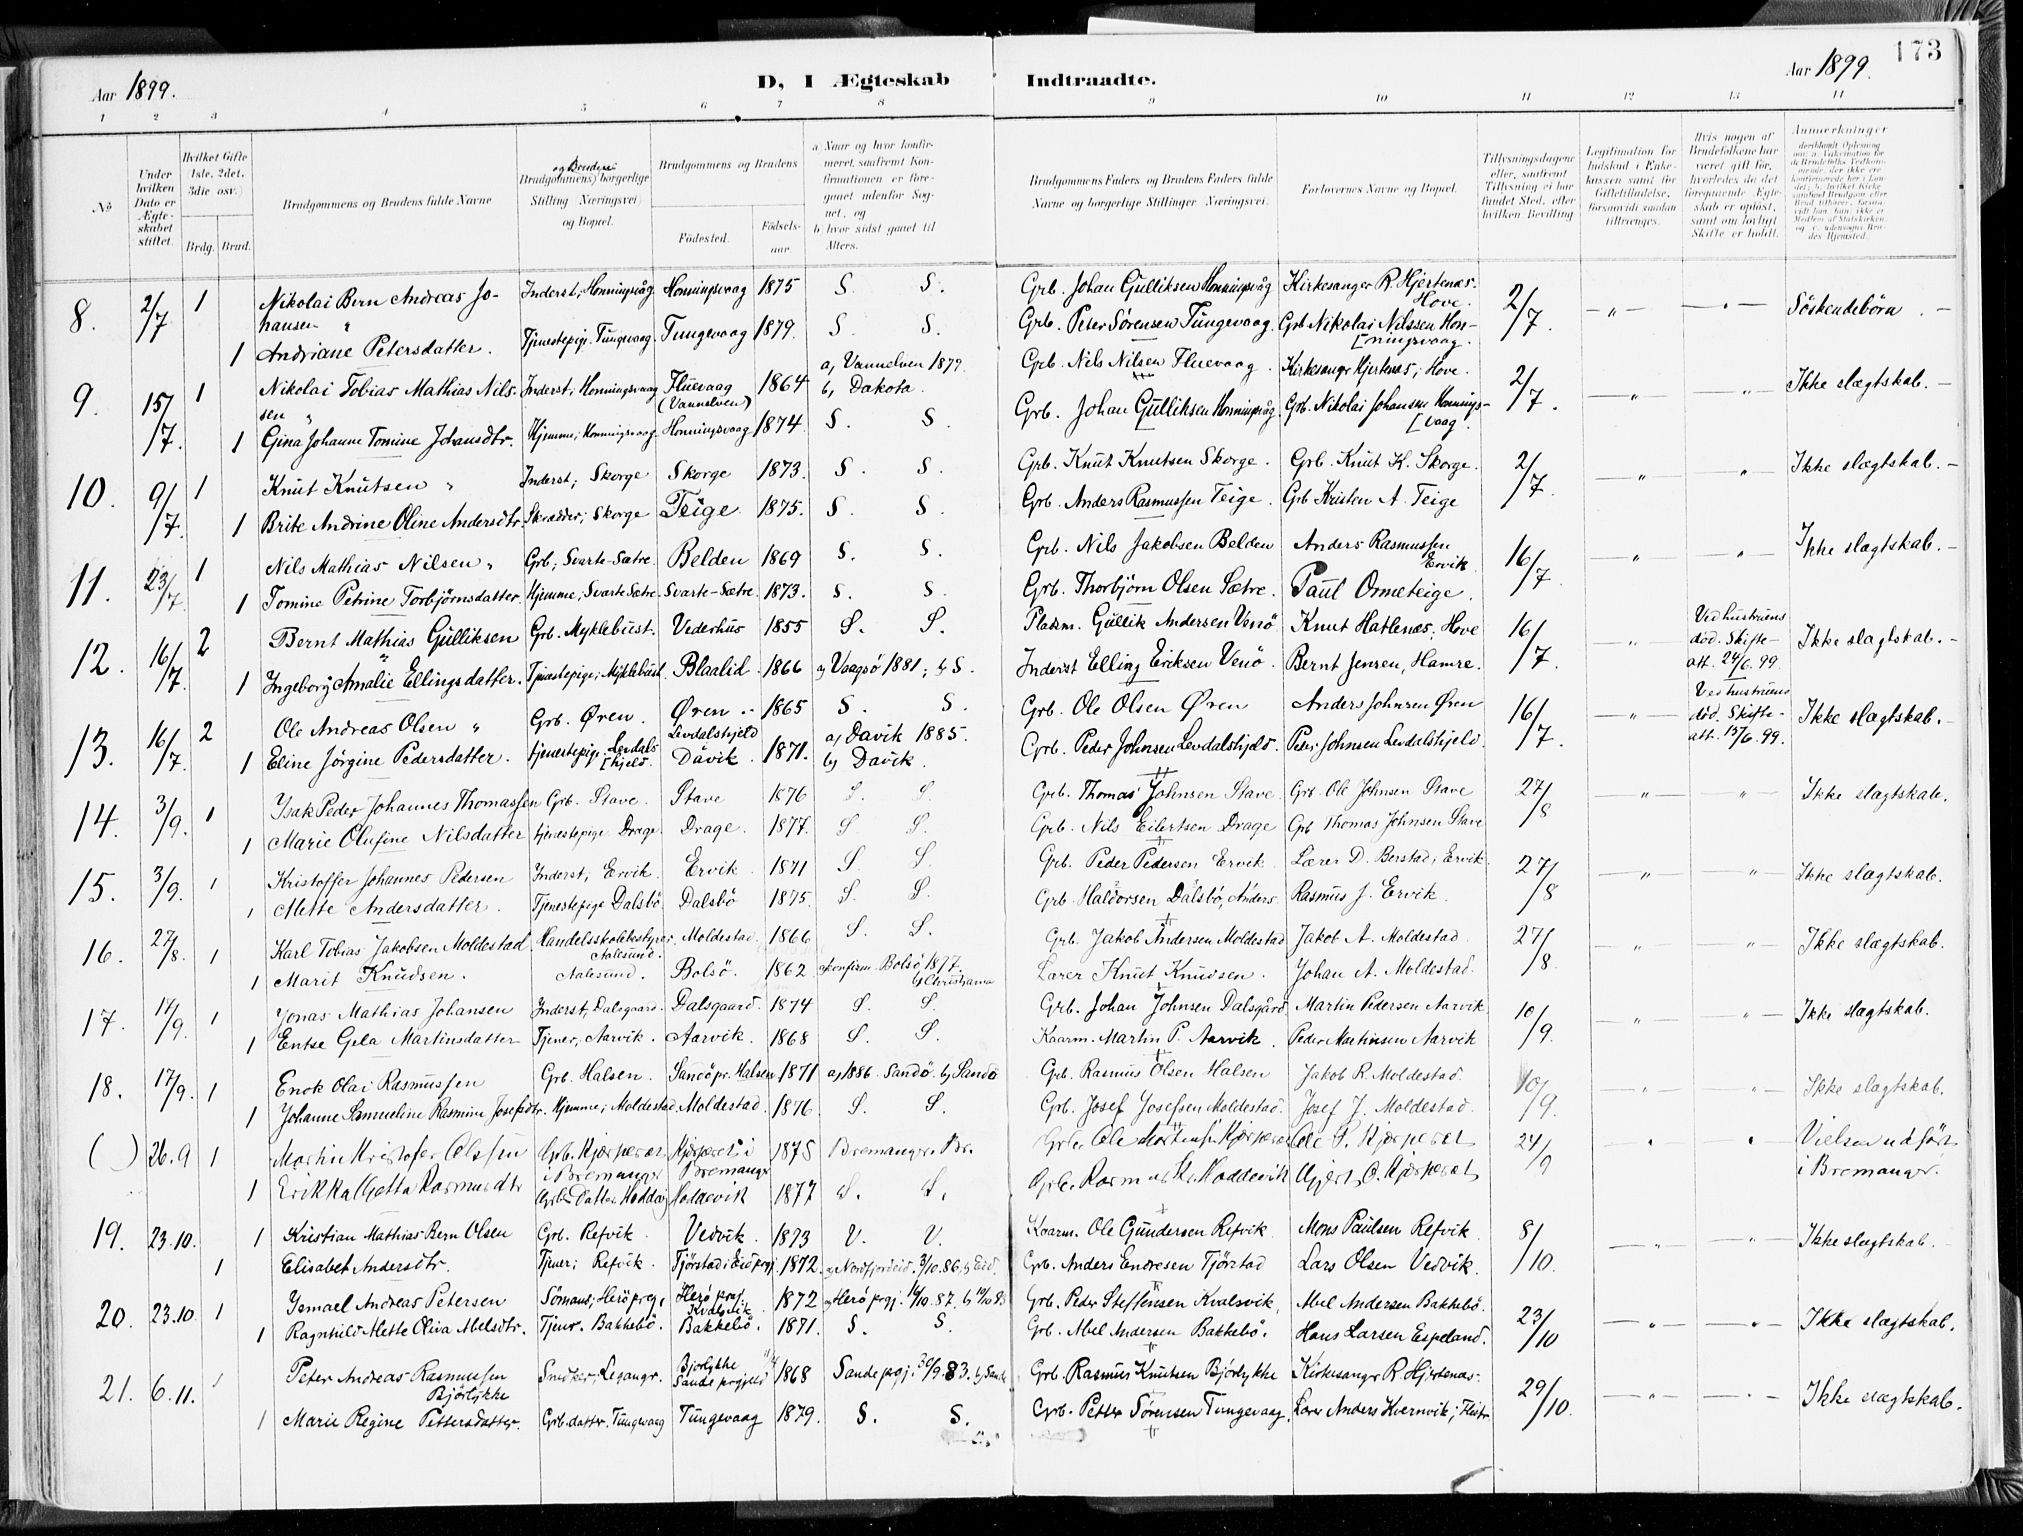 173
Aar 1899.
D, I Ægteskab Indtraadte.
Aar 1899.
1 2 3 4 5 6 7 8 9 10 11 12 13 14
No
Under hvilken Dato er Ægteskabet stiftet.
Hvilket Gifte (1ste, 2det, 3die osv.)
Brdg. Brud.
Brudgommens og Brudens fulde Navne
og Brudens
Brudgommens borgerlige Stilling (Næringsvei) og Bopæl.
Brudgommens og Brudens
Fødested.
Fødselsaar.
a) Naar og hvor konfirmeret, saafremt Konfirmationen er foregaaet udenfor Sognet, og
b) hvor sidst gaaet til Alters.
Brudgommens Faders og Brudens Faders fulde Navne og borgerlige Stillinger (Næringsvei).
Forlovernes Navne og Bopæl.
Tillysningsdagene eller, saafremt Tillysning ei har fundet Sted, efter hvilken Bevilling
Legitimation for Indskud i Enkekassen samt for Giftetilladelse, forsaavidt saadan tiltrænges.
Hvis nogen af Brudefolkene har været gift før, hvorledes da det foregaaende Ægteskab er opløst, samt om lovligt Skifte er holdt.
Anmærkninger
8. 2/7 1 Nikolai Bern Andreas Johansen Inderst, Honningsvåg Honningsvaag 1875 S. S. Grb. Johan Gulliksen Honningsvåg Kirkesanger R. Hjertenæs. Hove. 2/7. — " — — " — Söskendebörn. —
1 Andriane Petersdatter. Tjenestepig. Tungevaag. Tungevaag 1879. S. S. Grb. Peter Sørensen Tungevaag. Grb Nikolai Nilssen Honningsvaag.
9. 15/7. 1 Nikolai Tobias Mathias Nilssen Inderst, Honningsvaag Fluevaag (Vannelven) 1864 a, Vannelven 1879. b, Dakota. Grb. Nils Nilsen Fluevaag. Kirkesanger Hjertenæs; Hove. 2/7. — " — " Ikke slægtskab. —
1 Gina Johanne Tomine Johansdtr. Hjemme, Honningsvaag Honningsvaag 1874 S. S. Grb. Johan Gulliksen Honningsvåg Grb. Nikolai Johansen Honningsvaag.
10. 9/7. 1 Knut Knutsen " Inderst; Skorge Skorge 1873. S. S. Grb. Knut Knutsen Skorge. Grb. Knut K. Skorge. 2/7. — " — " Ikke slægtskab. —
1 Brite Andrine Oline Andersdtr. Skrædder; Skorge Teige 1875. S S. Grb. Anders Rasmussen Teige. Grb Kristen A. Teige
11. 23/7. 1 Nils Mathias Nilsen " Grb; Svarte-Sætre. Belden 1869 S. S. Grb. Nils Jakobsen Belden Anders Rasmussen Ervik. 16/7 " " Ikke slægtskab. —
1 Tomine Petrine Torbjörnsdatter. Hjemme; Svarte Sætre. Svarte-Sætre. 1873. S. S. Grb. Thorbjörn Olsen Sætre. Paul Ormeteige.
12. 16/7. 2 Bernt Mathias Gulliksen Grb. Myklebust. Vederhus 1855 S. S. Pladsm. Gullik Andersen Venö Knut Hatlenæs; Hove 16/7 " Ved hustruens död. Skifteatt. 24/6. 99. Ikke slægtskab. —
1 Ingeborg Amalie Ellingsdatter. Tjenestepige; Myklebust Blaalid 1866 a, Vaagsö 1881; b, S. Inderst Elling Eriksen Venö. Bernt Jensen, Hamre.
13. 16/7. 2 Ole Andreas Olsen " Grb. Øren. Øren 1865 S. S. Grb. Ole Olsen Øren Anders Johnsen Øren 16/7. — " — Ved hustruens död. Skifteatt. 15/6. 99. Ikke slægtskab. —
1 Eline Jörgine Pedersdatter. tjenestepig; Levdalshjeld. Levdalshjeld Davik. 1871. a, Davik 1885. b, Davik. Grb. Peder Johnsen Levdalshjeld. Peder Johnsen Levdalshjeld.
14. 3/9. 1 Isak Peder Johannes Thomassen Grb. Stave. Stave 1876 S. S. Grb. Thomas Johnsen Stave. Grb. Ole Johnsen Stave 27/8 " " Ikke slægtskab.
1 Marie Olufine Nilsdatter tjenestepige Drage. Drage. 1877. S S. Grb. Nils Eilertsen Drage Grb Thomas Johnsen Stave
15. 3/9. 1 Kristoffer Johannes Pedersen Inderst; Ervik. Ervik 1871 S S. Grb. Peder Pedersen Ervik Lærer D. Berstad; Ervik. 27/8 " " Ikke slægtskab.
1 Mette Andersdatter. Tjenestepige Dalsbö. Dalsbö 1875. S. S. Grb Haldorsen Dalsbö, Anders Rasmus J. Ervik.
16. 27/8. 1 Karl Tobias Jakobsen Moldestad Handelsskolebestyrer Aalesund. Moldestad. 1866 S. S. Grb. Jakob Andersen Moldestad Jakob A. Moldestad 27/8 " " Ikke slægtskab.
1 Marit Knudsen. Aalesund. Bolsö. 1862 a, konfirm. Bolsö 1877. b, Christiania Lærer Knut Knudsen. Johan A. Moldestad.
17. 17/9. 1 Jonas Mathias Johansen Inderst, Dalsgaard. Dalsgaard. 1874 S. S. Grb. Johan Johnsen Dalsgård Martin Pedersen Aarvik 10/9. " " Ikke slægtskab.
1 Entse Gela Martinsdatter Tjener, Aarvik. Aarvik. 1868 S. S. Kaarm. Martin P. Aarvik. Peder Martinsen Aarvik
18. 17/9. 1 Enok Olai Rasmussen Grb. Halsen. Sandö pr. Halsen 1871 a, 1886. Sandö. b, Sandö Grb. Rasmus Olsen Halsen Jakob R. Moldestad. 10/9. " " Ikke slægtskab.
1 Johanne Samueline Rasmine Josefsdtr. Hjemme; Moldestad. Moldestad. 1876. S. S. Grb. Josef Josefsen Moldestad. Josef J. Moldestad.
( ) 26.9 1 Martin Kristofer Olsen i Bremanger i Bremanger 1875 Bremanger. Br. 24/9 Vielsen udført i Bremanger.
1 1877 S. S.
19. 23.10. 1 Kristian Mathias Bern Olsen Grb. Refvik. Vedvik. 1873 V. V. Kaarm. Ole Gundersen Refvik Mons Paulsen Refvik 8/10. " " Ikke slægtskab.
1 Elisabet Andersdtr. Tjener; Refvik. Tjörstad i Eid prgj. 1872. a, Nordfjordeid. 3/10.86. b, Eid. Grb. Anders Endresen Tjörstad Lars Olsen Vedvik.
20. 23.10. 1 Ismael Andreas Petersen Sömand; Herö prgj. Herö prgj. Kvalsvik 1872 Grb. Peder Steffensen Kvalsvik, Abel Andersen Bakkebö. 23/10 — " — — " — Ikke slægtskab.
1 Ragnhild Mette Oliva Abelsdtr. Tjener. Bakkebö. Bakkebö. 1871. S. S. Grb. Abel Andersen Bakkebö. Hans Larsen Espeland.
21. 6.11. 1 Peter Andreas Rasmussen Björlykke Snedker, Leganger. Björlykke Sande prgjeld 1868 Sande prgj. 30/9.83. b, Sande Grb. Rasmus Knutsen Björlykke Kirkesanger R Hjertenæs. 29/10. — " — — " — Ikke slægtskab.
1 Marie Regine Pettersdatter. Grb.datter. Tungevaag Tungevaag 1879. S. S. Grb. Petter Sörensen Tungevaag. Lærer Anders Kvernvik;